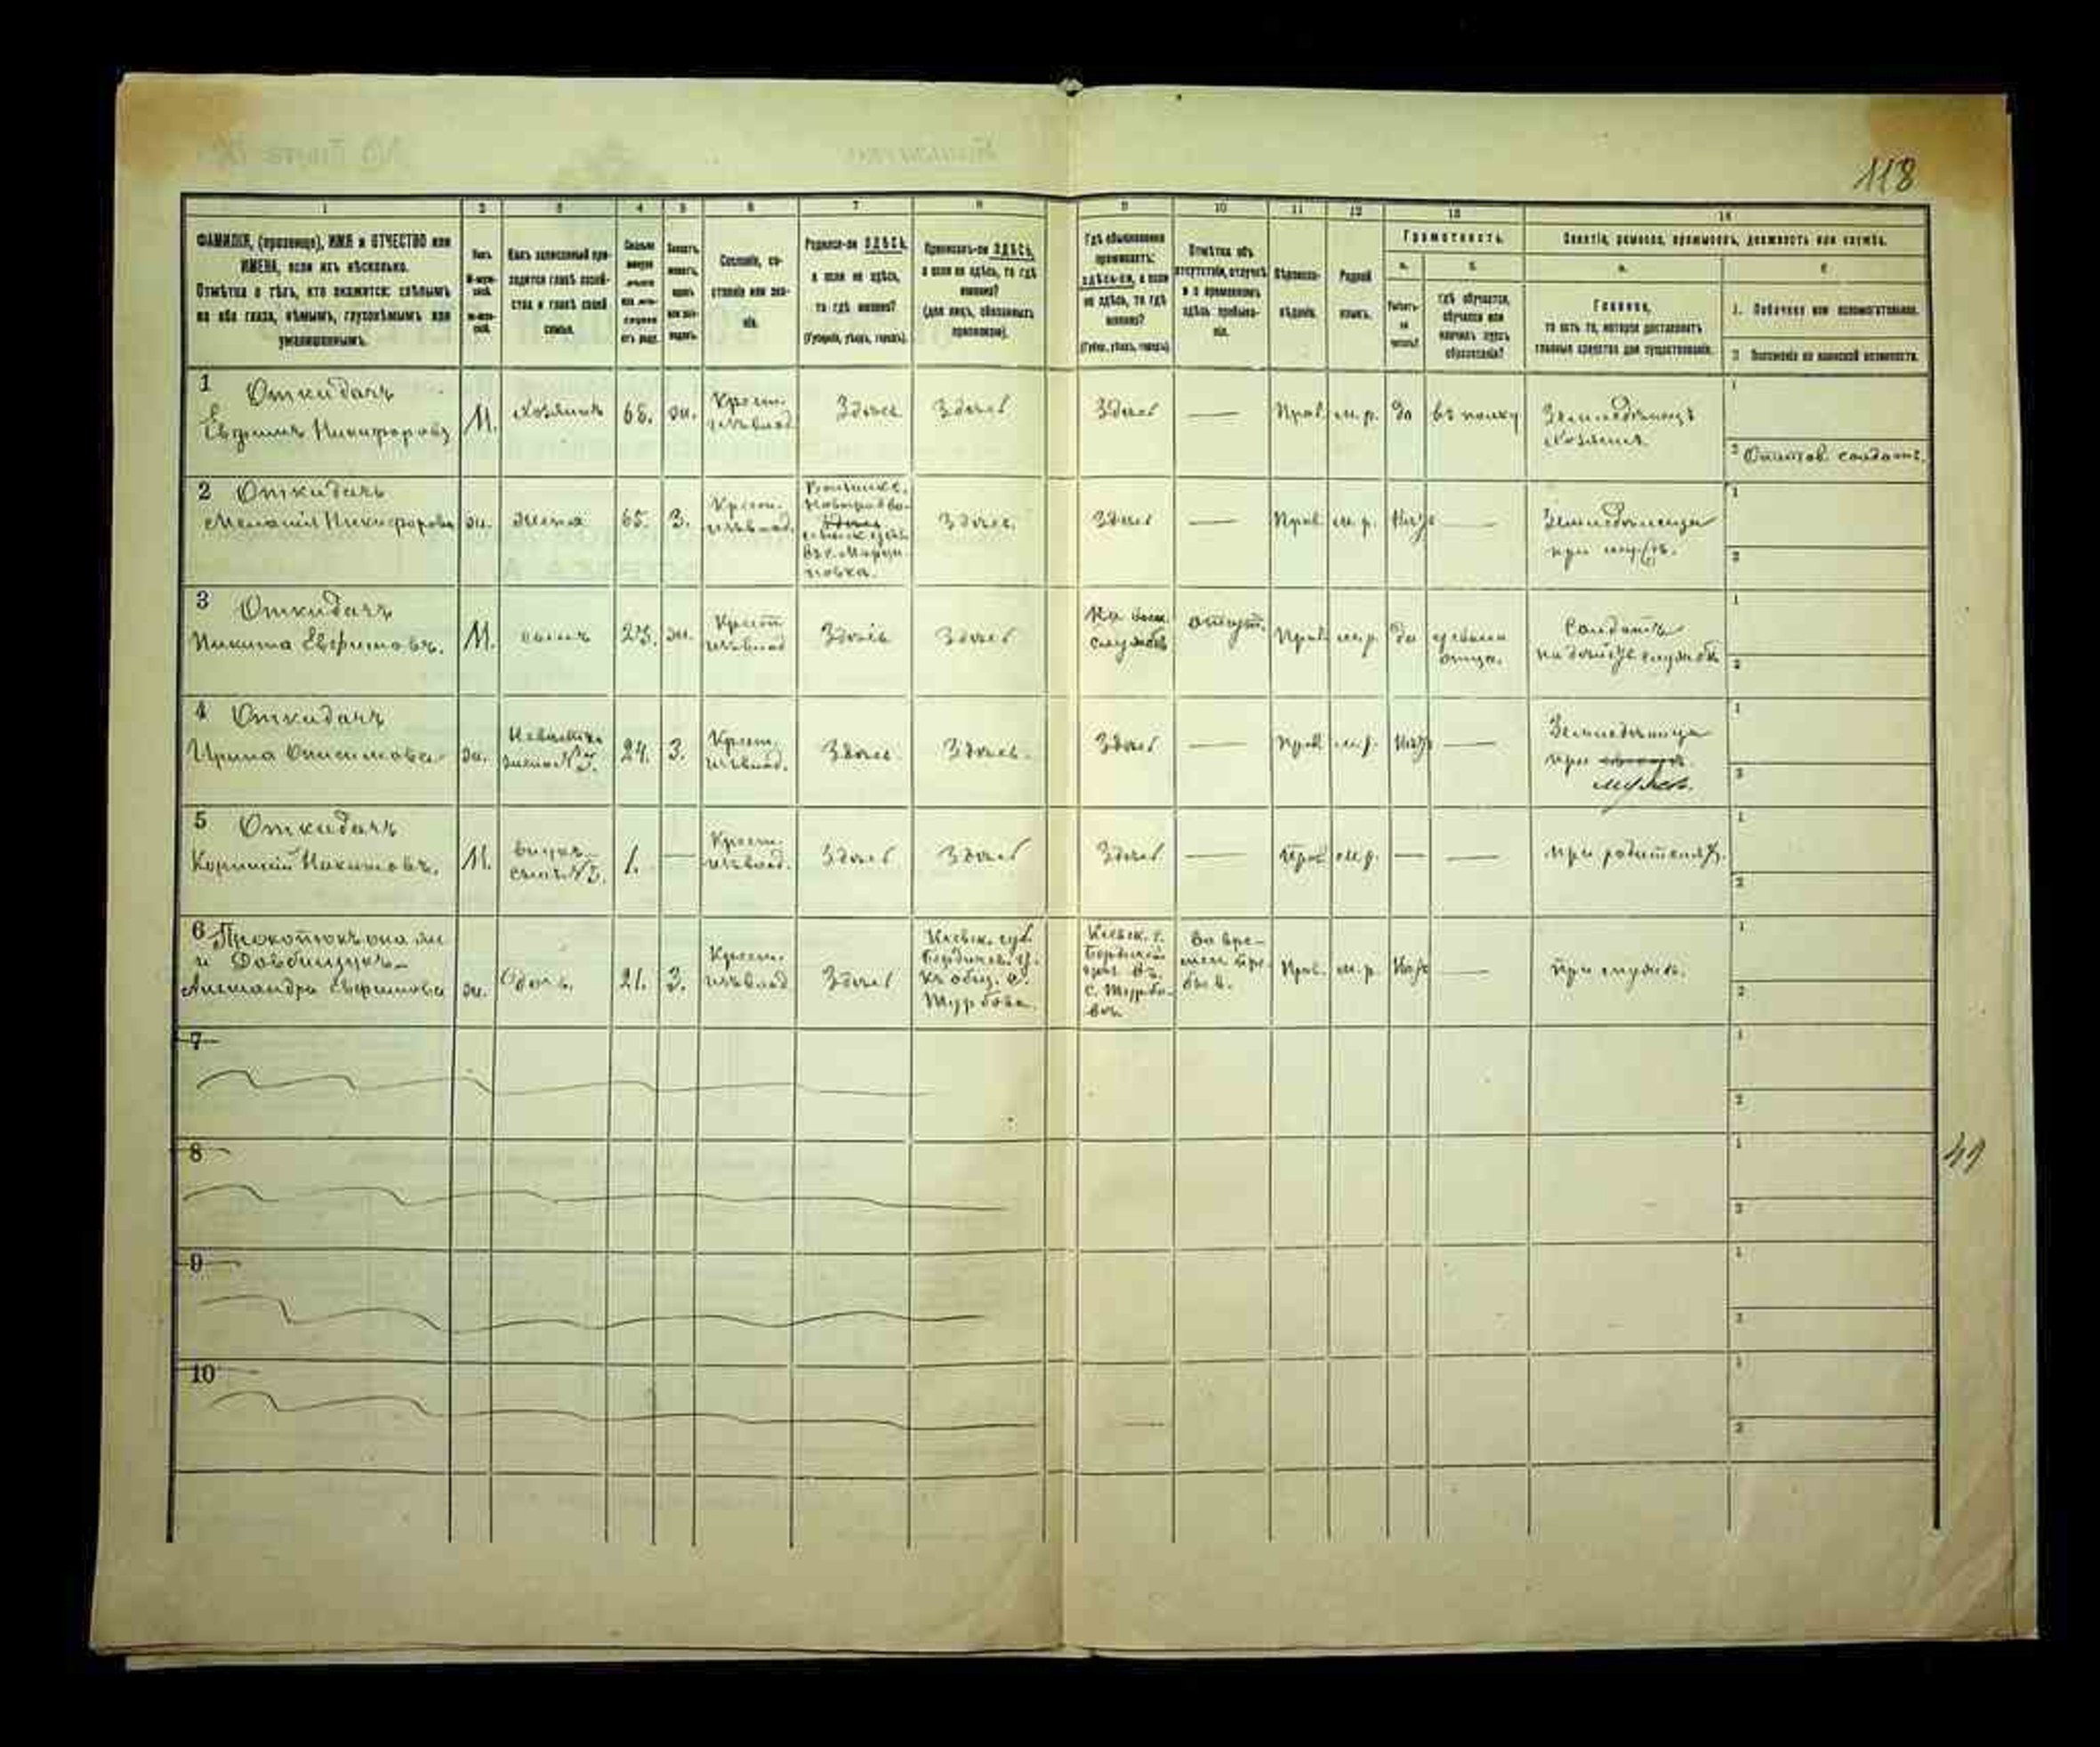 118
1 2 3 4 5 6 7 8 9 10 11 12 13 14
ФАМИЛІЯ, (прозвище), ИМЯ и ОТЧЕСТВО или
ИМЕНА, если ихъ нѣсколько.
Отмѣтка о тѣхъ, кто окажется: слѣпымъ
на оба глаза, нѣмымъ, глухонѣмымъ или
умалишеннымъ.
Какъ записанный при-
ходится главѣ хозяй-
ства и главѣ своей
семьи.
Сословіе, со-
стояніе или зва-
ніе.
Родился-ли ЗДѢСЬ,
а если не здѣсь,
то гдѣ именно?
(Губернія, уѣздъ, городъ).
Приписанъ-ли ЗДѢСЬ,
а если не здѣсь, то гдѣ
именно?
(для лицъ, обязанныхъ
припискою).
Гдѣ обыкновенно
проживаетъ:
здѣсь-ли, а если
не здѣсь, то гдѣ
именно?
(Губер., уѣздъ, городъ).
Отмѣтка объ
отсутствіи, отлучкѣ
и о временномъ
здѣсь пребыва-
ніи.
Вѣроиспо-
вѣданіе.
Родной
языкъ.
Грамотность.
а. б.
Умѣетъ-
ли
читать?
гдѣ обучается,
обучался или
кончилъ курсъ
образованія?
Занятіе, ремесло, промыселъ, должность или служба.
а. б.
Главное,
то есть то, которое доставляетъ
главныя средства для существованія.
1. Побочное или вспомогательное.
2 Положеніе по воинской повинности.
1 Откидачъ
Ефримъ Никифоровъ М. хозяинъ 68. ж. Крест. Здѣсь Здѣсь Здѣсь — Прав. м. р. да въ полку Земледѣлецъ
хозяинъ
1
2 солдатъ.
2 Откидачъ
Меланія Никифорова ж. жена 65. З. Крест. Здѣсь Здѣсь — Прав. м. р. — Земледѣлица
при
1
2
3 Откидачъ
Никита Ефримовъ. М. сынъ 23. ж. Крест Здѣсь Здѣсь На воен.
службѣ отсут. Прав. м. р. да у своего
отца. Солдатъ
службѣ
1
2
4 Откидачъ
Ирина Онисимова ж. Невѣстка
жена №3. 24. З. Крест. Здѣсь Здѣсь Здѣсь — Прав. м. р. — Земледѣлица
при
мужѣ.
1
2
5 Откидачъ
Корнилій Никитовъ. М. внукъ
сынъ №3. 1. — Крест. Здѣсь Здѣсь Здѣсь — Прав. м. р. — — при родителях.
1
2
6 Прокопюкъ она же
и Довбищукъ
Александра Ефримова ж. дочь. 21. З. Крест. Здѣсь
Кіевск. губ.
Бердичев. у.
къ общ. с.
Турбова.
Кіевск. г.
Бердичев.
уѣз. въ
с. Турбо-
вѣ.
Во вре-
мен. пре-
быв. Прав. м. р. — при мужѣ.
1
2
7
1
2
8
1
2
49
9
1
2
10
1
2